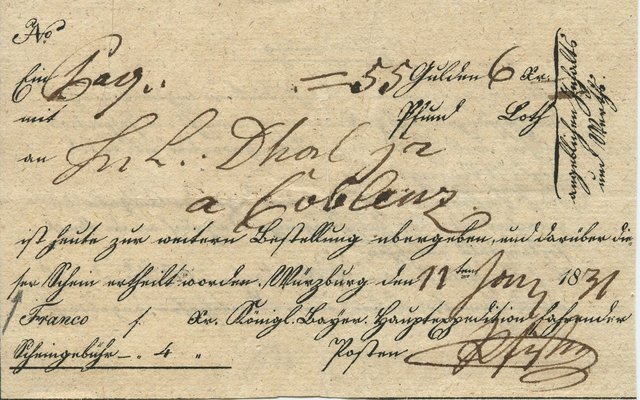 No.
Ein Paq. = 55 Gulden 6 Kr.
mit Pfund Loth
angeblichen Inhalts
und Werths.
an
à Coblenz
ist heute zur weitern Bestellung übergeben, und darüber die
ser Schein ertheilt worden. Würzburg den 11ten Jan 1831
Franco f. Kr. Königl. Bayer. Hauptexpedition fahrender
Scheingebühr — „ 4 „ Posten